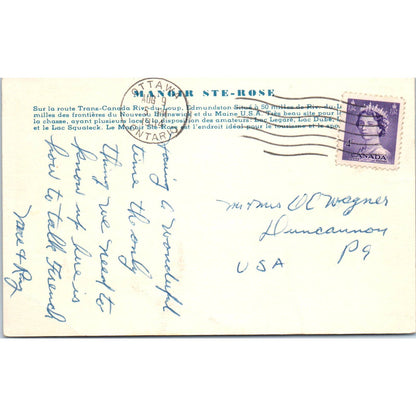 MANOIR STE-ROSE
Sur la route Trans-Canada Riv.-du-Loup, Edmundston Situé à 50 milles de Riv. du L
milles des frontières du Nouveau Brunswick et du Maine U.S.A. Très beau site pour l
la chasse, ayant plusieurs lacs à la disposition des amateurs: Lac Légaré, Lac Dubé, L
et le Lac Squateck. Le Manoir Ste-Rose est l'endroit idéal pour le tourisme et le spo
OTTAWA
AUG 9
ONTARIO
CANADA
Having a wonderful
time the only
thing we need to
know up here is
how to talk French
& Ray
Mr & Mrs O C Wagner
Duncannon
Pa
USA